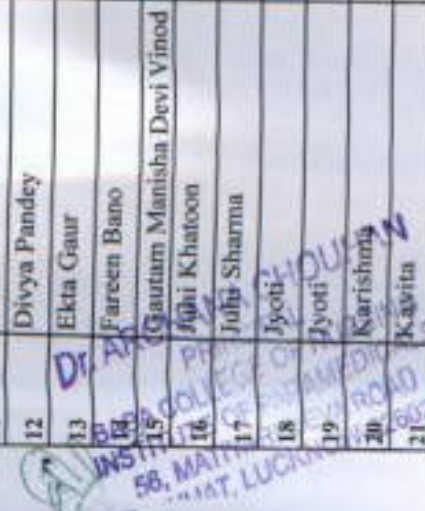 12 Divya Pandey
13 Ekta Gaur
14 Fareen Bano
15 Gautam Manisha Devi Vinod
16 Juhi Khatoon
17 Juhi Sharma
18 Jyoti
19 Jyoti
20 Karishma
21 Kavita
Dr. ARCHANA CHOUHAN
COLLEGE OF
INSTITUTE OF PARAMEDICAL
56, ROAD
LUCKNOW